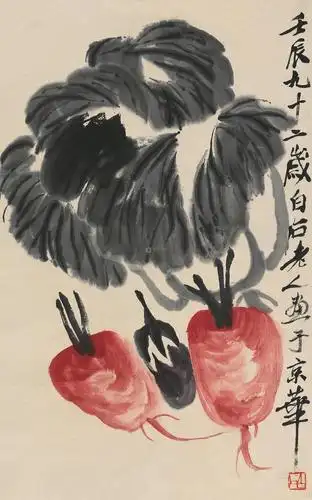 壬辰九十二歲白石老人畫于京華